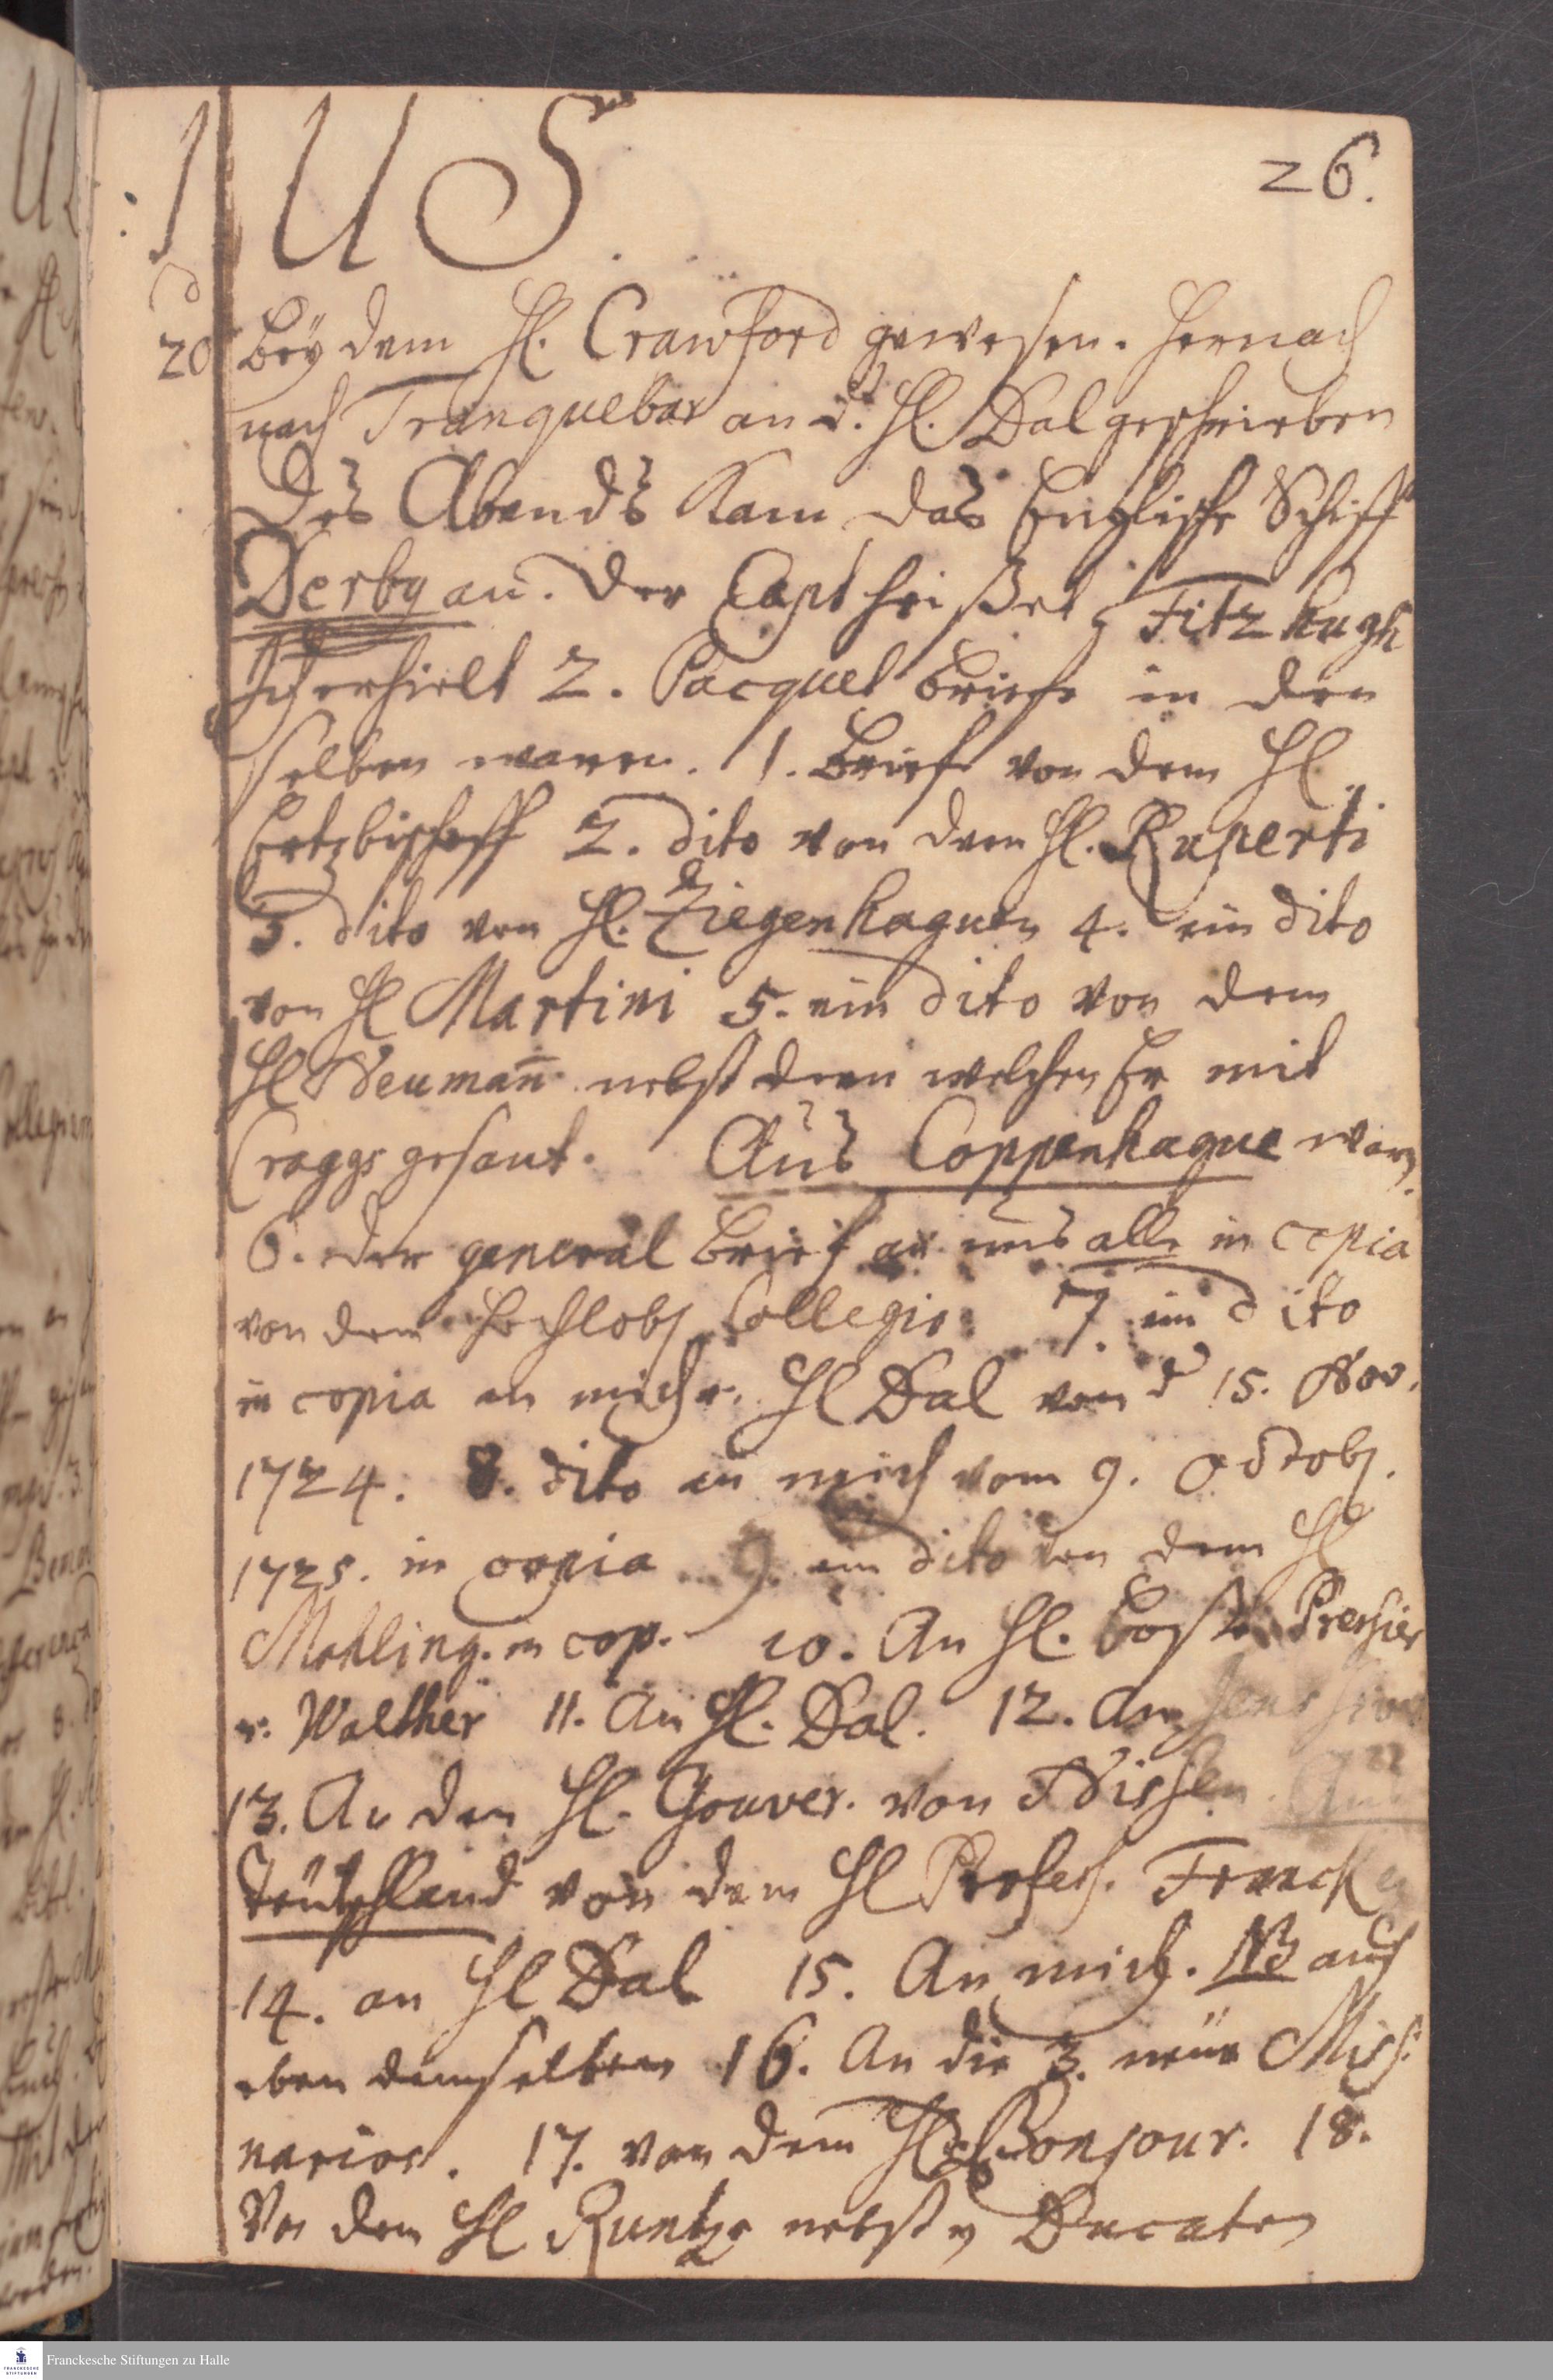 IUS. 26.
d
20 bey dem H. Crawford gewesen. Hernach
nach Tranquebar an d. H. Dal geschrieben
Des Abends kam das Englische Schiff
Derby an. Der Capt heißet Fitzhugh
Ich erhielt 2. Pacquet briefe in den
selben waren. 1. brief von dem H.
Ertzbischoff 2. dito von dem H. Ruperti
3. dito von H. Ziegenhaguen 4. ein dito
von H Martini 5. ein dito von dem
H Neumañ nebst dem welchen Er mit
Craggs gesant. Aus Coppenhague warn
6. der general brief an uns alle in copia
von dem Hochlobl Collegio 7 ein dito
in copia an mich u. H Dal von d 15. Nov.
1724. 8. dito an mich vom 9. Octobr.
1725. in copia 9. ein dito von dem H
Mohling. in cop. 10. An H. Boße Pressier
u. Walther 11. An H. Dal. 12. An
13. An den H. Gouver. von Nissen. Aus
Teütschland von dem H Profess. Francken
14. an H Dal 15. An mich. NB auch
eben demselben 16. An die 3. neüe Miss:
narios. 17. von dem H. Bonjour. 18.
Von dem H Runtze nebst Ducaten
Franckesche Stiftungen zu Halle
FRANCKESCHE
STIFTUNGEN